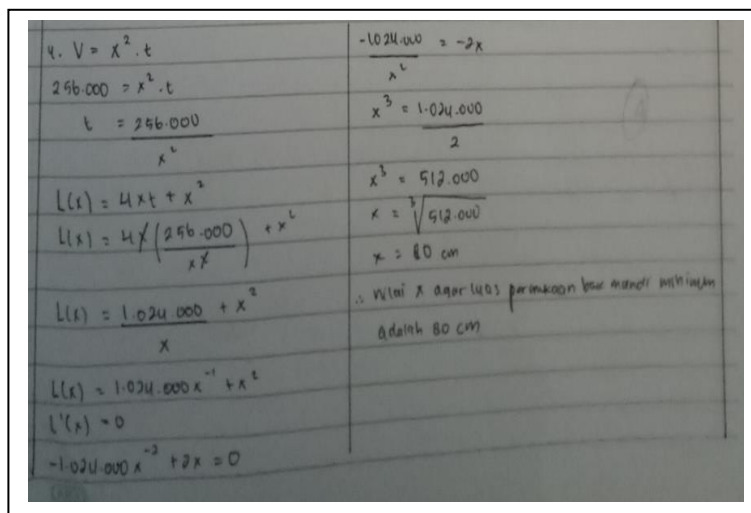 4. V = x². t
256.000 = x². t
t = 256.000 / x²
L(x) = 4xt + x²
L(x) = 4x (256.000 / xx) + x²
L(x) = 1.024.000 / x + x²
L(x) = 1.024.000x⁻¹ + x²
L'(x) = 0
-1.024.000x⁻² + 2x = 0
-1.024.000 / x² = -2x
x³ = 1.024.000 / 2
x³ = 512.000
x = ∛512.000
x = 80 cm
∴ Nilai x agar luas permukaan bak mandi minimum
adalah 80 cm